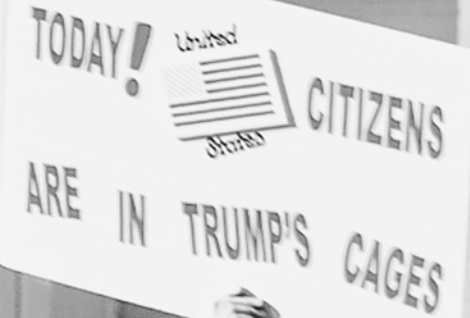 TODAY! United States CITIZENS
ARE IN TRUMP'S CAGES